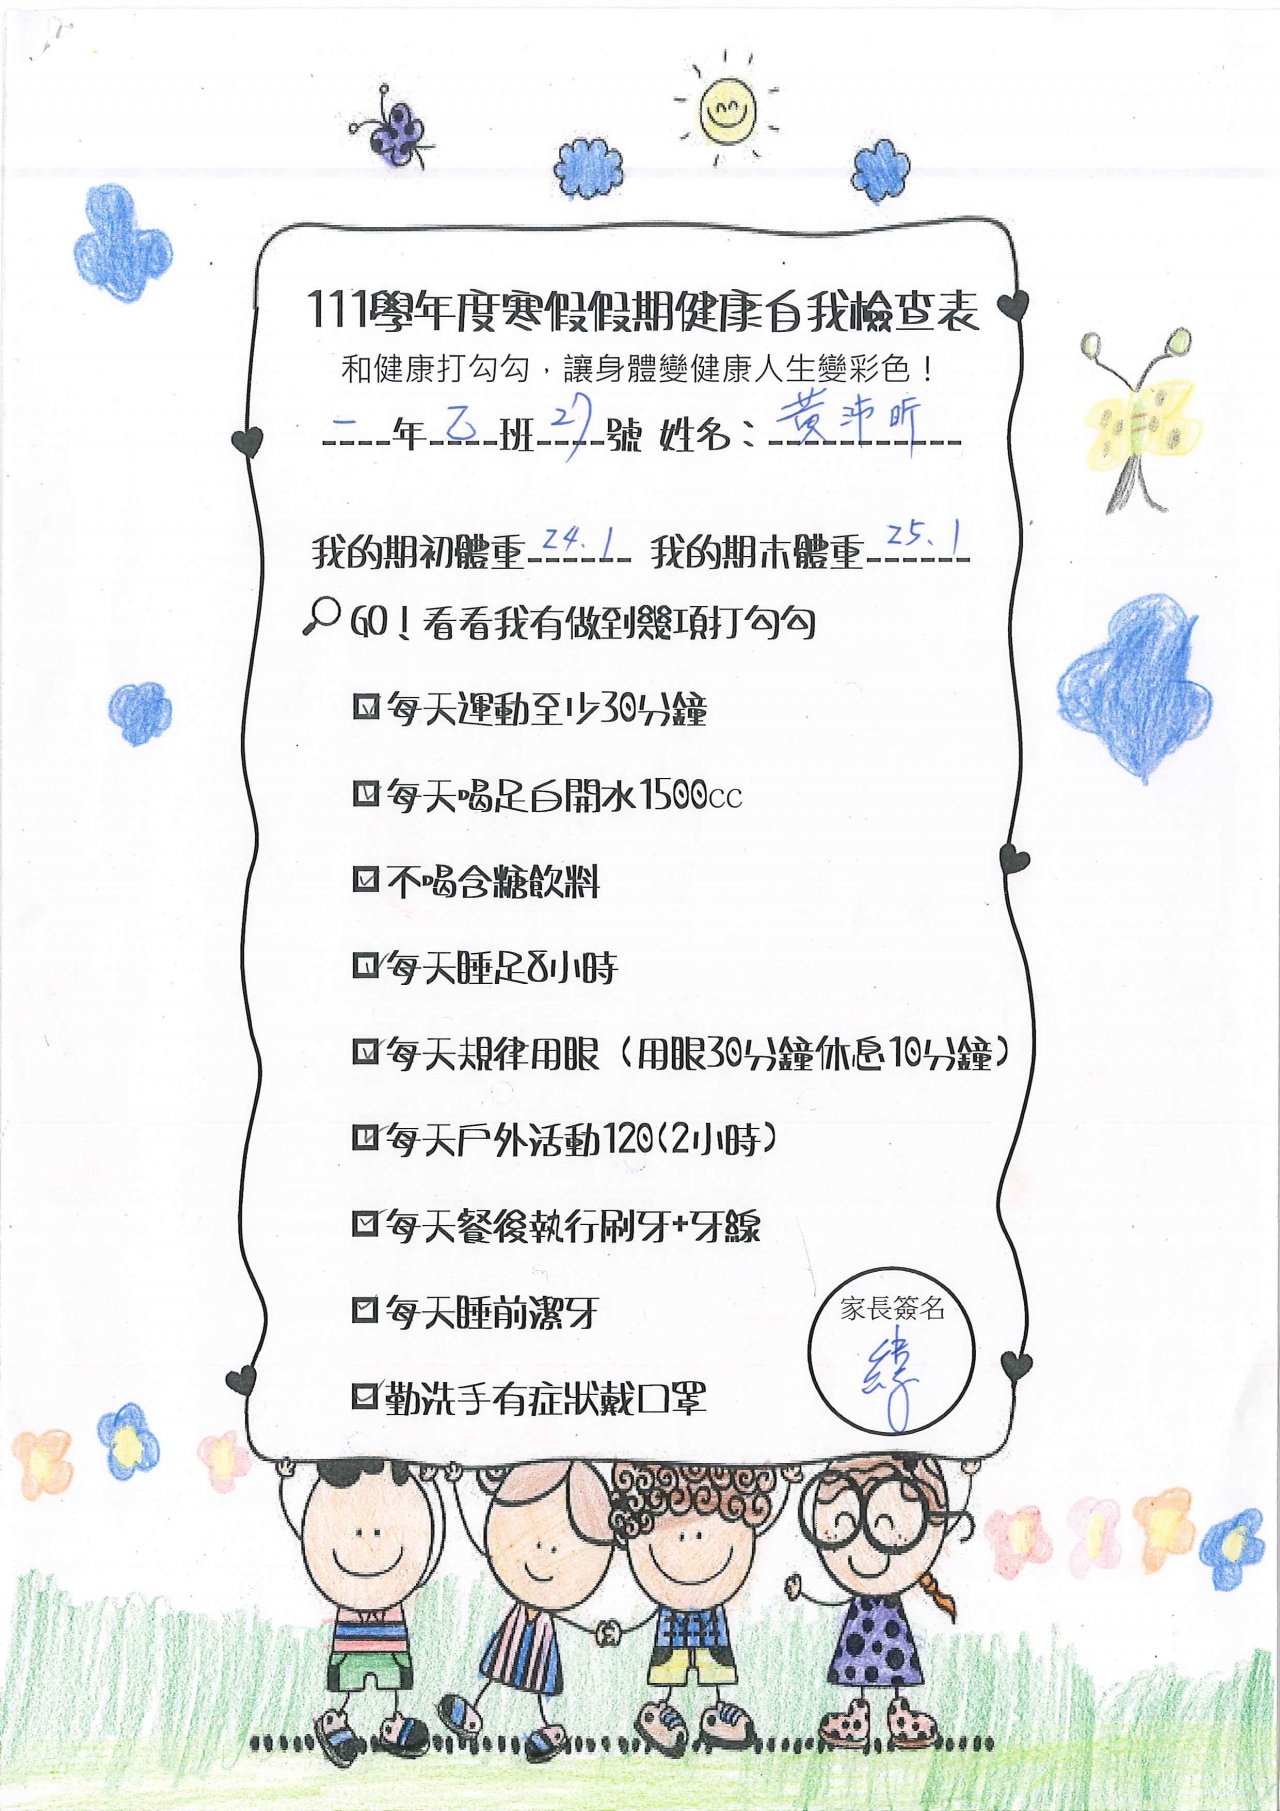 111學年度寒假假期健康自我檢查表
和健康打勾勾,讓身體變健康人生變彩色!
一年乙班27號 姓名:黃沛昕
我的期初體重24.1 我的期末體重25.1
GO!看看我有做到幾項打勾勾
☑每天運動至少30分鐘
☑每天喝足白開水1500cc
☑不喝含糖飲料
☑每天睡足8小時
☑每天規律用眼(用眼30分鐘休息10分鐘)
☑每天戶外活動120(2小時)
☑每天餐後執行刷牙+牙線
☑每天睡前潔牙
☑勤洗手有症狀戴口罩
家長簽名